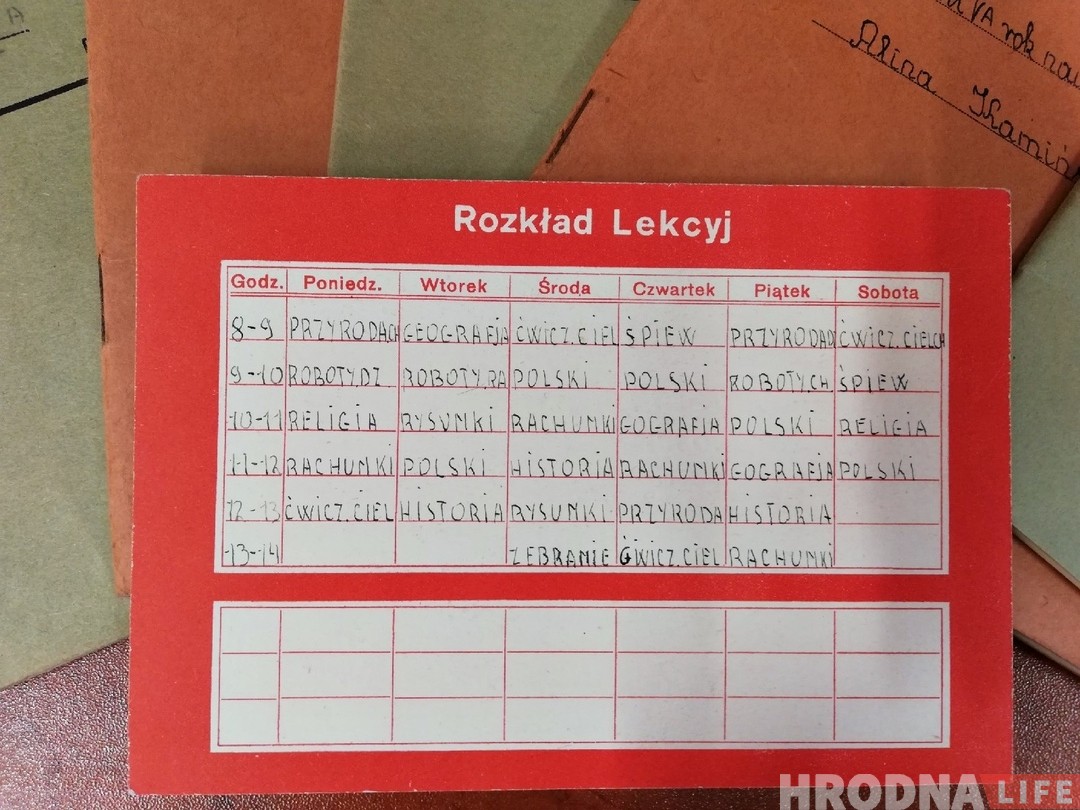 A
VA rok na
Alina Kamiń
Rozkład Lekcyj
Godz. Poniedz. Wtorek Środa Czwartek Piątek Sobota
8-9 PRZYRODACH GEOGRAFJA ĆWICZ.CIEL ŚPIEW PRZYRODAD ĆWICZ.CIELCH
9-10 ROBOTY.DZ ROBOTY.RA POLSKI POLSKI ROBOTY.CH ŚPIEW
10-11 RELIGIA RYSUNKI RACHUNKI GOGRAFJA POLSKI RELIGIA
11-12 RACHUNKI POLSKI HISTORIA RACHUNKI GOGRAFJA POLSKI
12-13 ĆWICZ.CIEL HISTORIA RYSUNKI PRZYRODA HISTORIA
13-14 ZEBRANIE ĆWICZ.CIEL RACHUNKI
HRODNA LIFE